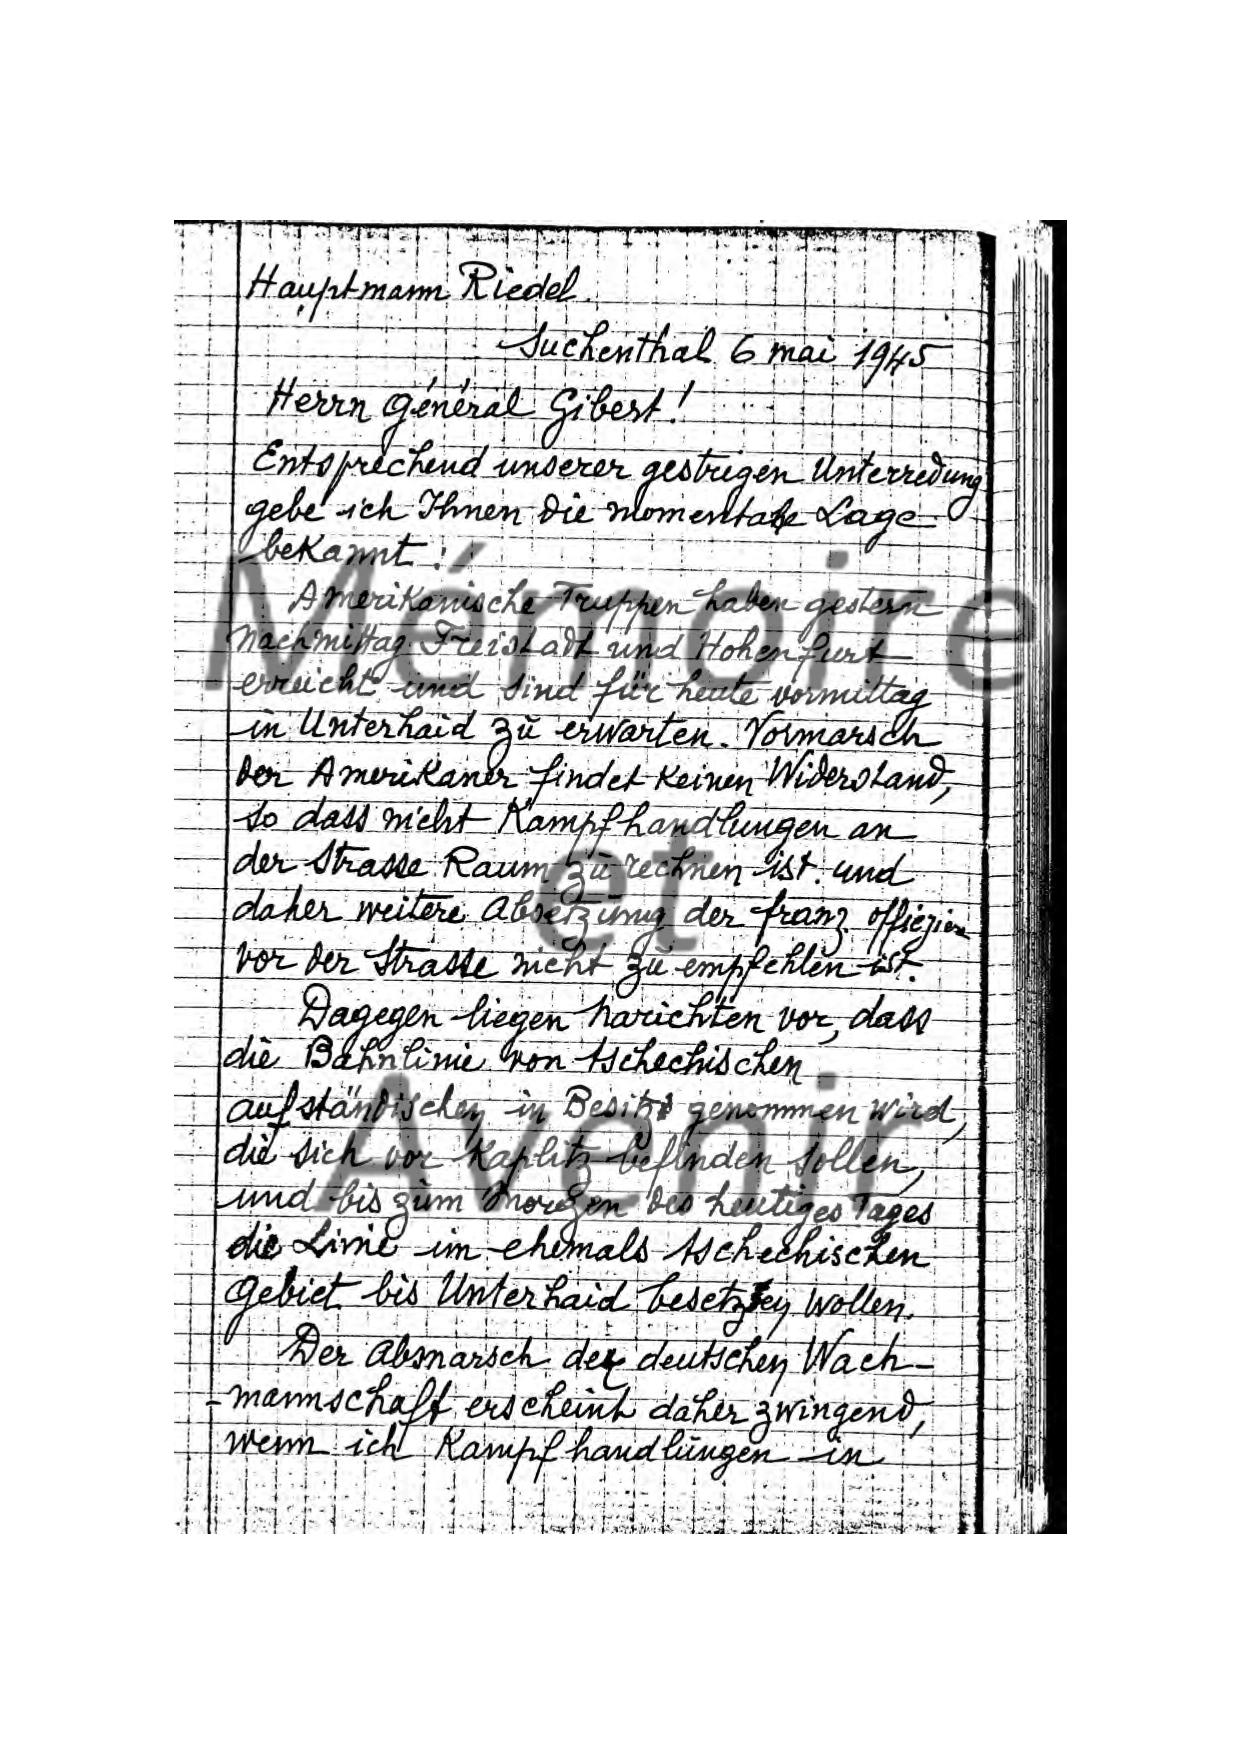 Hauptmann Riedel.
Suchenthal 6 mai 1945
Herrn Général Gibert!
Entsprechend unserer gestrigen Unterredung
gebe ich Ihnen die momentale Lage
bekannt :
Amerikanische Truppen haben gestern
Nachmittag Freistadt und Hohenfurt
erreicht und sind für heute vormittag
in Unterhaid zu erwarten. Vormarsch
der Amerikaner findet keinen Widerstand,
so dass nicht Kampfhandlungen an
der Strasse Raum zu rechnen ist. und
daher weitere Absetzung der franz. offiziere
vor der Strasse nicht zu empfehlen ist.
Dagegen liegen narichten vor, dass
die Bahnlinie von tschechischen
aufständischen in Besitz genommen wird,
die sich vor Kaplitz befinden sollen,
und bis zum Morgen des heutiges Tages
die Linie im ehemals tschechischen
Gebiet bis Unterhaid besetzen wollen.
Der Abmarsch der deutschen Wach-
mannschaft erscheint daher zwingend,
wenn ich Kampfhandlungen in
Mémoire
et
Avenir